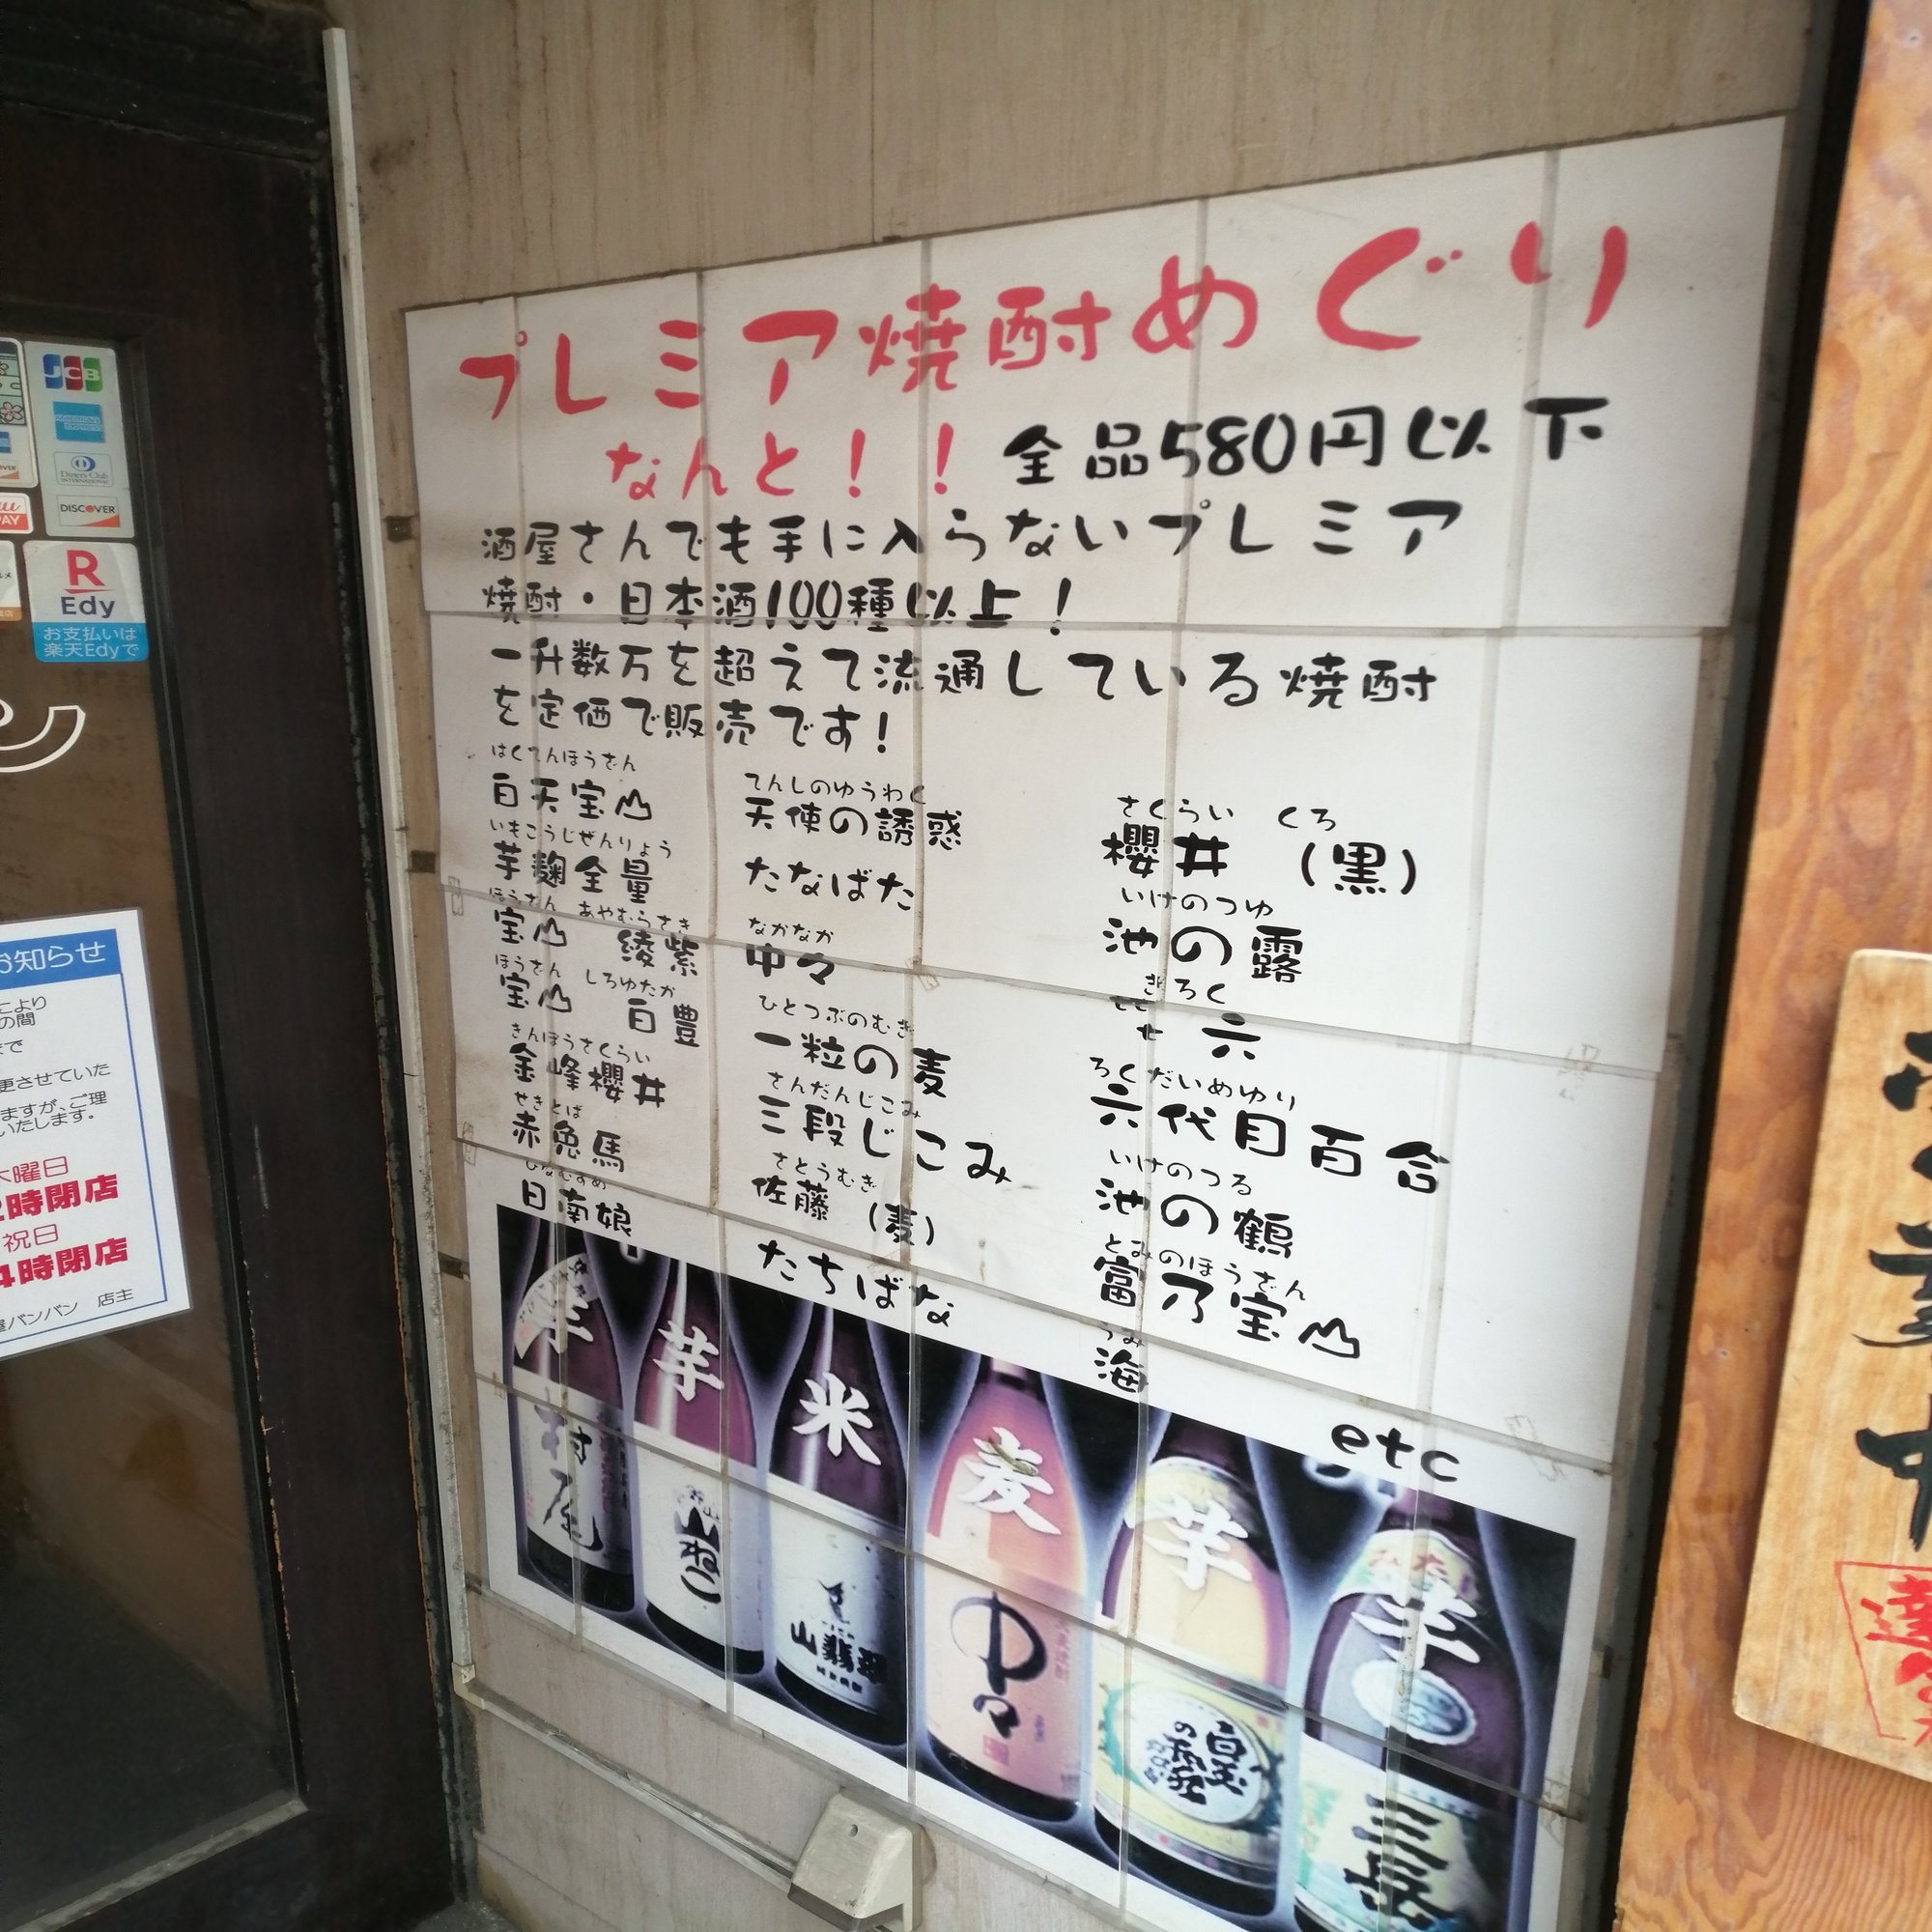 プレミア焼酎めぐり
なんと！！全品580円以下
酒屋さんでも手に入らないプレミア
焼酎・日本酒100種以上！
一升数万を超えて流通している焼酎
を定価で販売です！
はくてんほうざん
白天宝山
いもこうじぜんりょう
芋麹全量
ほうざん あやむらさき
宝山 綾紫
ほうざん しろゆたか
宝山 白豊
きんぽうさくらい
金峰櫻井
せきとば
赤兎馬
ひなむすめ
日南娘
てんしのゆうわく
天使の誘惑
たなばた
なかなか
中々
ひとつぶのむぎ
一粒の麦
さんだんじこみ
三段じこみ
さとうむぎ
佐藤 (麦)
たちばな
さくらい くろ
櫻井 (黒)
いけのつゆ
池の露
ぎろく
㐂六
ろくだいめゆり
六代目百合
いけのつる
池の鶴
とみのほうざん
富乃宝山
うみ
海
etc
芋
村尾
芋
山ねこ
米
山翡翠
麦
中々
芋
白玉
の露
芋
三岳
JCB
AMERICAN EXPRESS
Diners Club
INTERNATIONAL
DISCOVER
PAY
R
Edy
お支払いは
楽天Edyで
お知らせ
により
の間
まで
更させていた
ますが、ご理
いたします。
木曜日
2時閉店
祝日
4時閉店
屋バンバン 店主